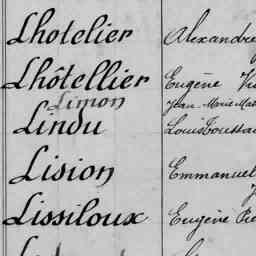 Lhotelier Alexandre
Lhôtellier Eugène
Limon Jean-Marie
Lindu Louis Toussa
Lision Emmanuel
Lissiloux Eugène